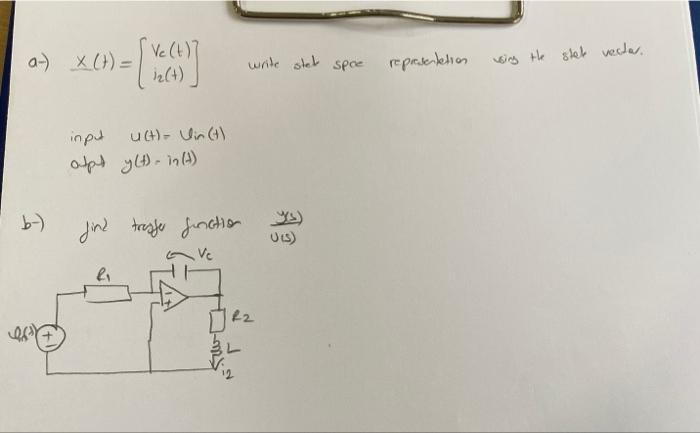 a-) x(t) = [ Vc(t) i2(t) ] write stat space representation using the stat vector.
input u(t) = Vin(t)
output y(t) = i2(t)
b-) find transfer function Y(s) / U(s)
Vc
R1
R2
L
i2